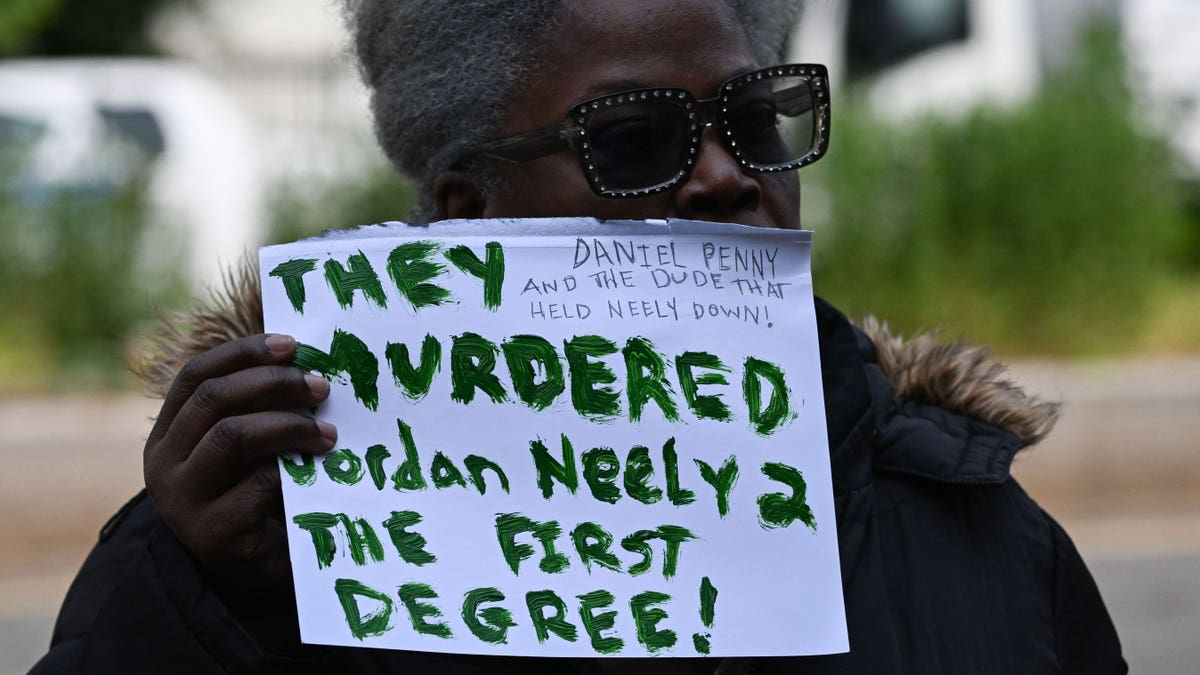 THEY
DANIEL PENNY
AND THE DUDE THAT
HELD NEELY DOWN!
MURDERED
Jordan Neely 2
THE FIRST
DEGREE!